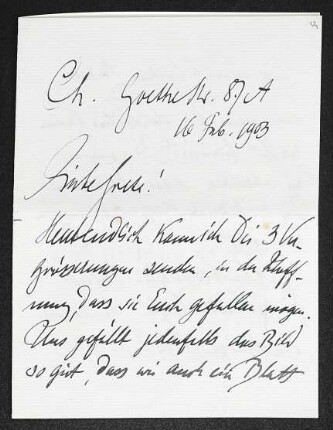 Ch. Goethestr. 87 A
16 Feb. 1903
Liebe Grete!
Heut endlich kann ich Dir 3 Ver-
grösserungen senden, in der Hoff-
nung, dass sie Euch gefallen mögen.
Uns gefällt jedenfalls das Bild
so gut, dass wir auch ein Blatt